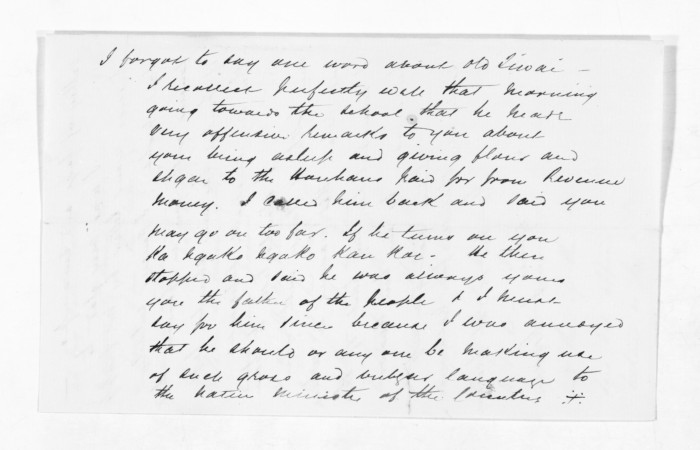 I forgot to say one word about old Tiwai –
I recollect perfectly well that morning
going towards the school that he made
very offensive remarks to you about
your being asleep and giving flour and
sugar to the Hauhaus paid for from Revenue
money. I called him back and said you
may go on too far. If he turns on you
ka ngako ngako kau koe. He then
stopped and said he was always yours
you the father of the people & I
say for him since because I was annoyed
that he should or any one be making use
of such gross and vulgar language to
the Native Minister of the